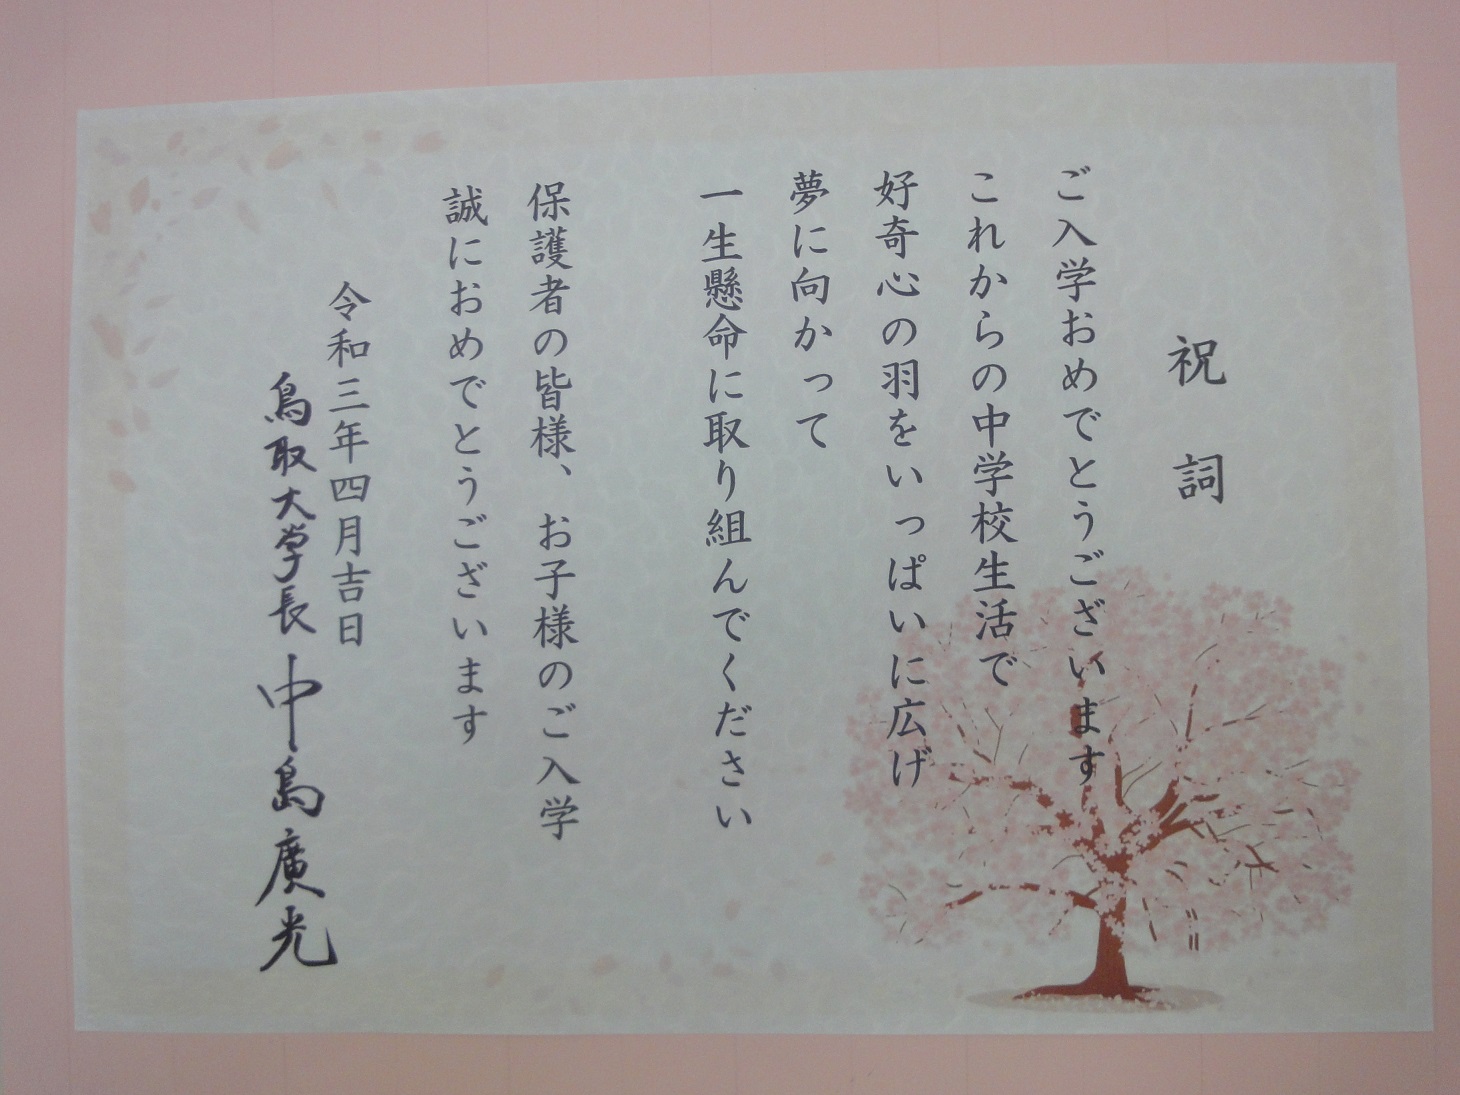 祝詞
ご入学おめでとうございます
これからの中学校生活で
好奇心の羽をいっぱいに広げ
夢に向かって
一生懸命に取り組んでください
保護者の皆様、お子様のご入学
誠におめでとうございます
令和三年四月吉日
鳥取大学長 中島廣光